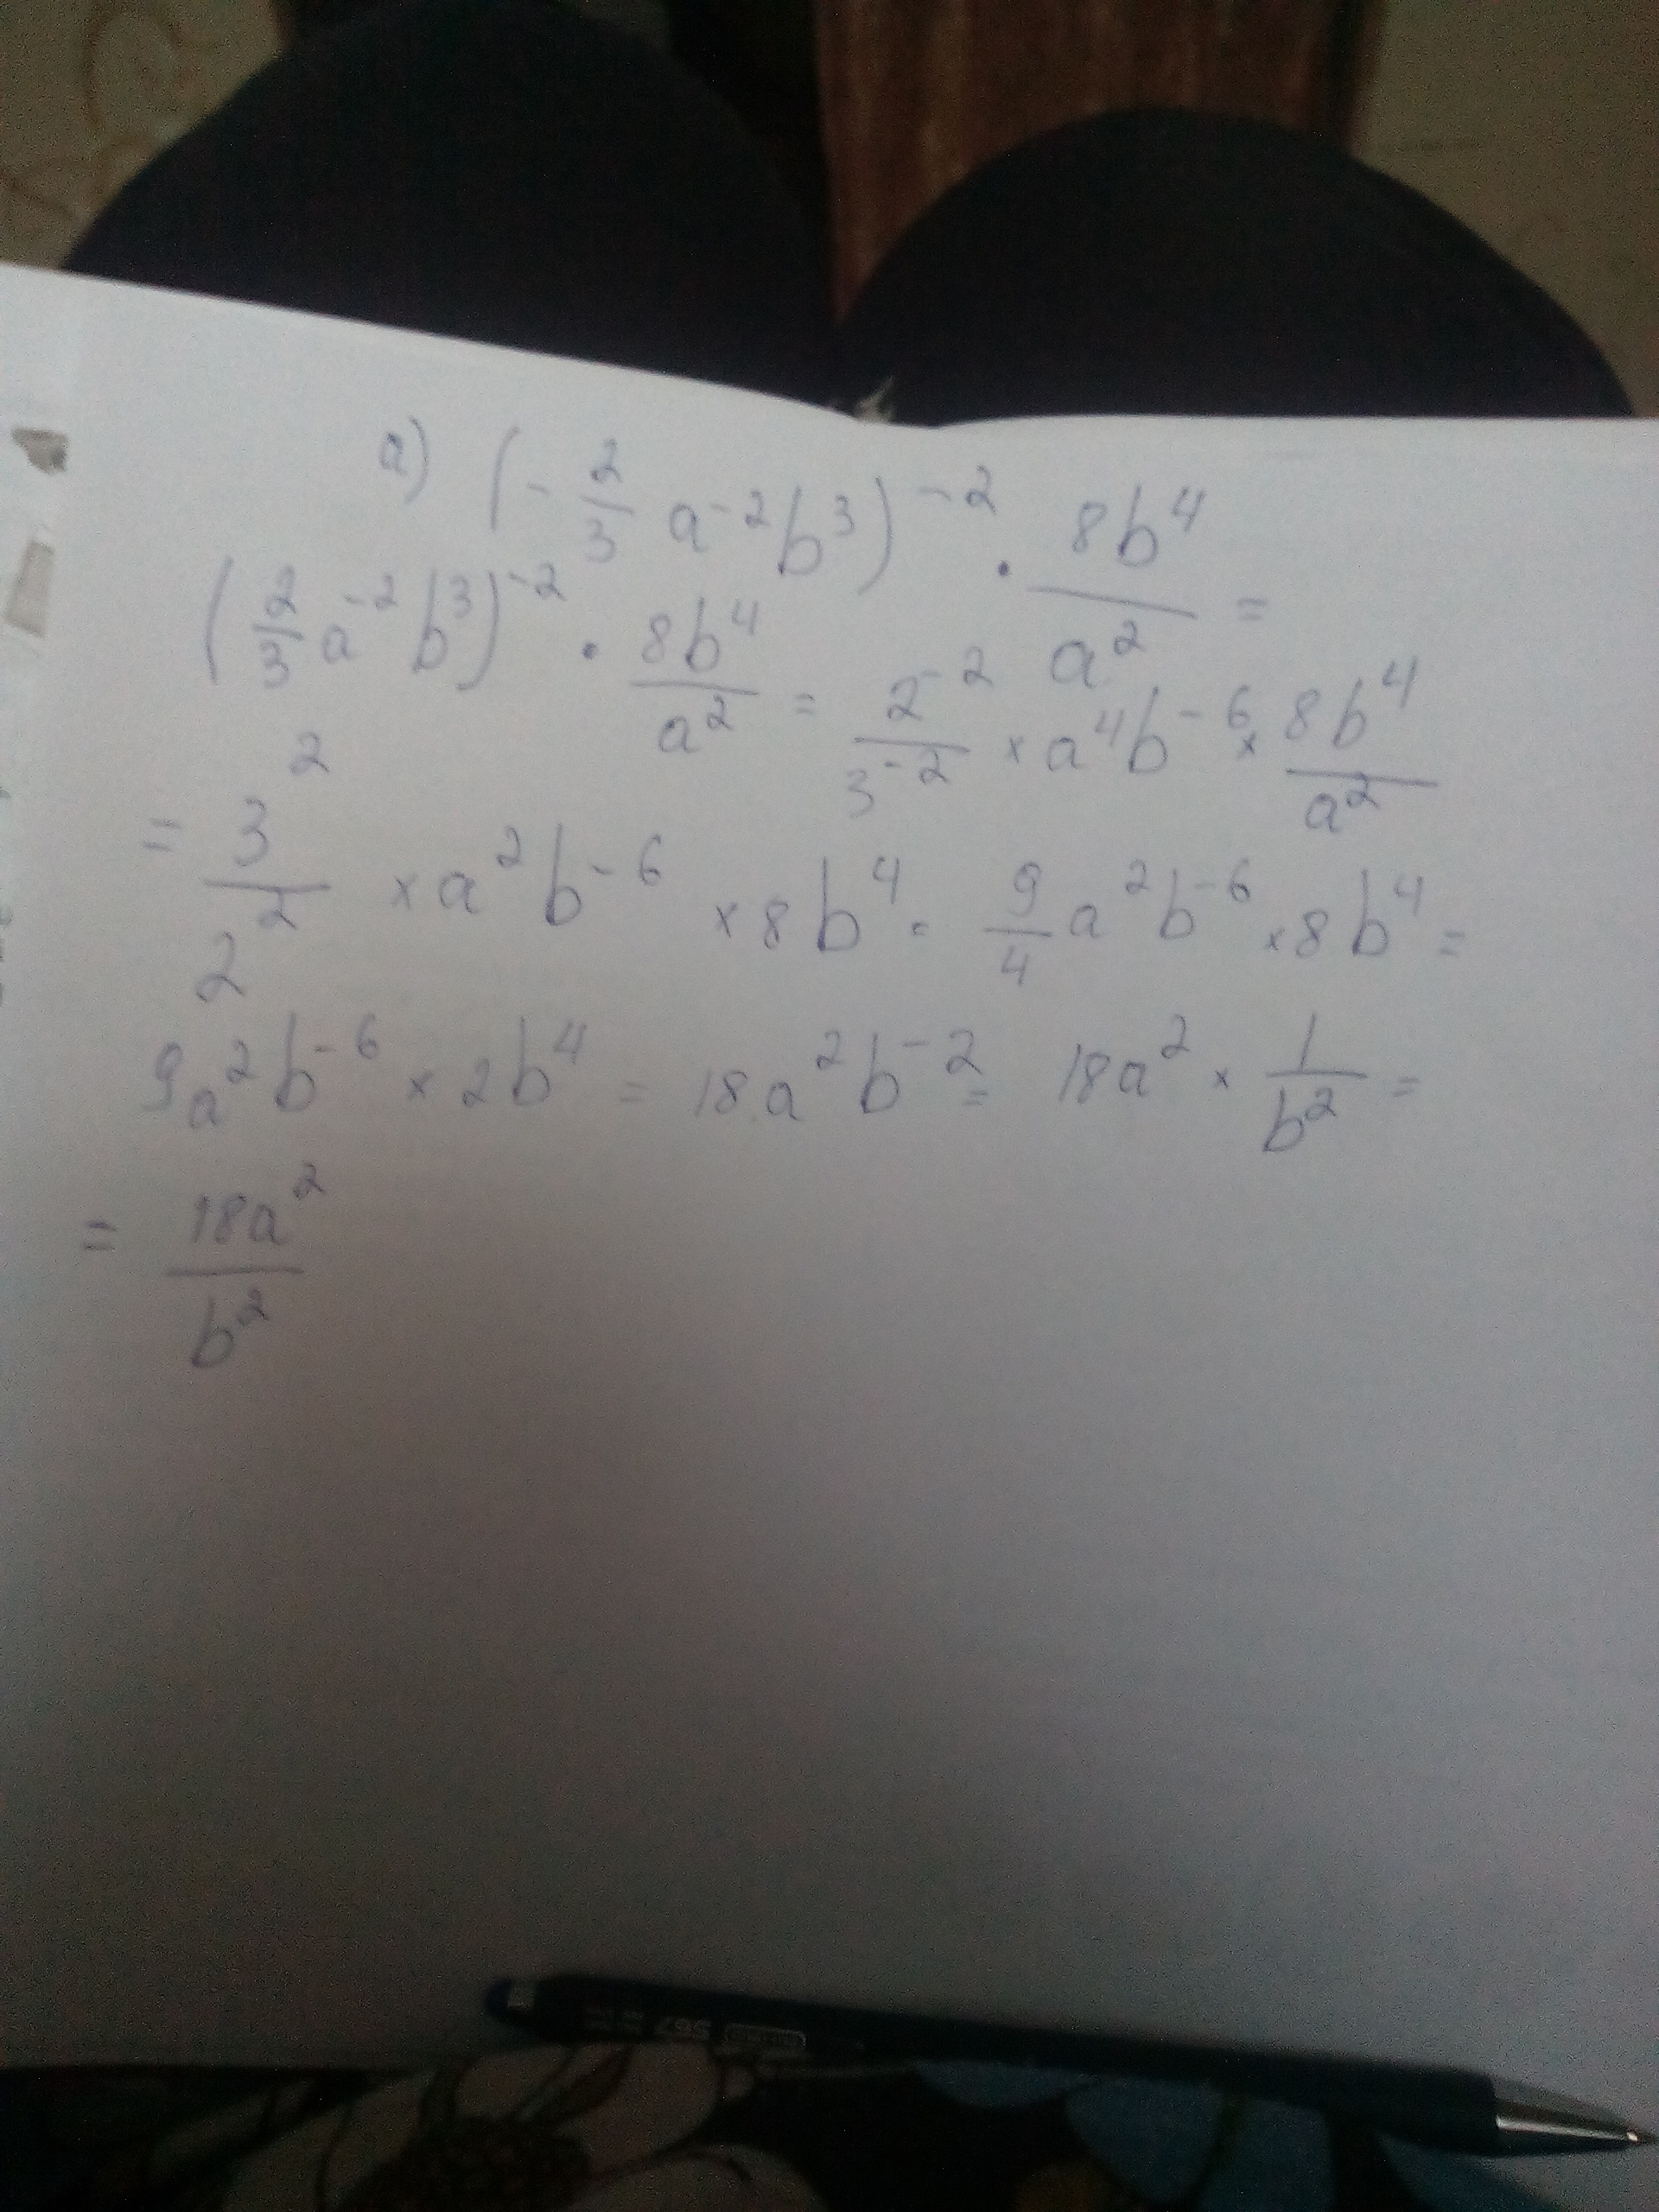 a) (-2/3 a^-2 b^3)^-2 · 8b^4/a^2 =
(2/3 a^-2 b^3)^-2 · 8b^4/a^2 = 2^-2/3^-2 × a^4 b^-6 × 8b^4/a^2
= 3^2/2^2 × a^2 b^-6 × 8b^4 = 9/4 a^2 b^-6 × 8b^4 =
9a^2 b^-6 × 2b^4 = 18a^2 b^-2 = 18a^2 × 1/b^2 =
= 18a^2/b^2
567